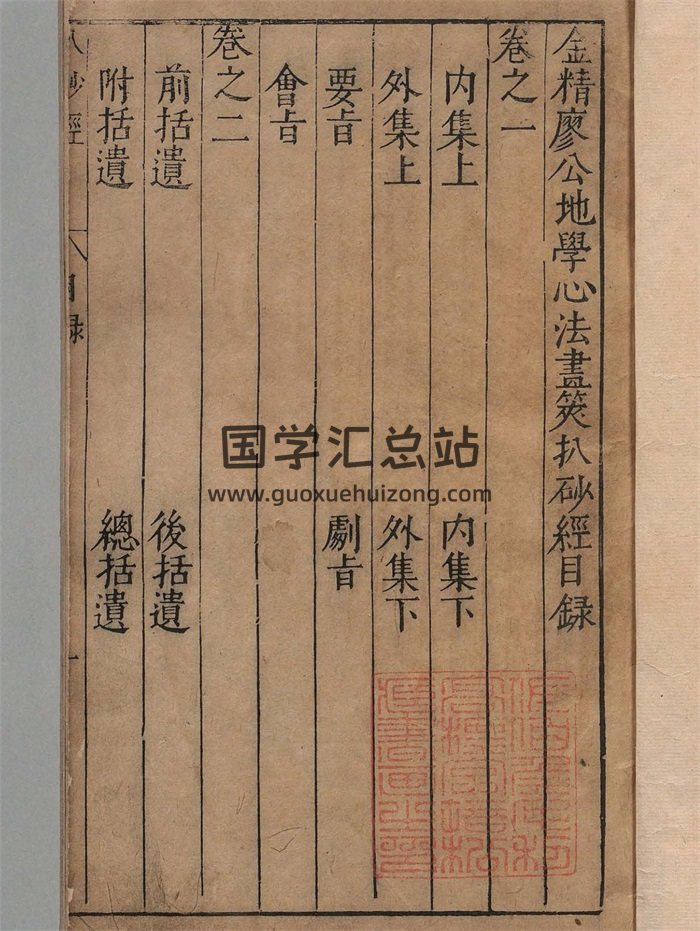 金精廖公地學心法畫筴扒砂經目録
卷之一
內集上 內集下
外集上 外集下
要旨 劇旨
會旨
卷之二
前括遺 後括遺
附括遺 總括遺
砂經 目録 一
国学汇总站
www.guoxuehuizong.com